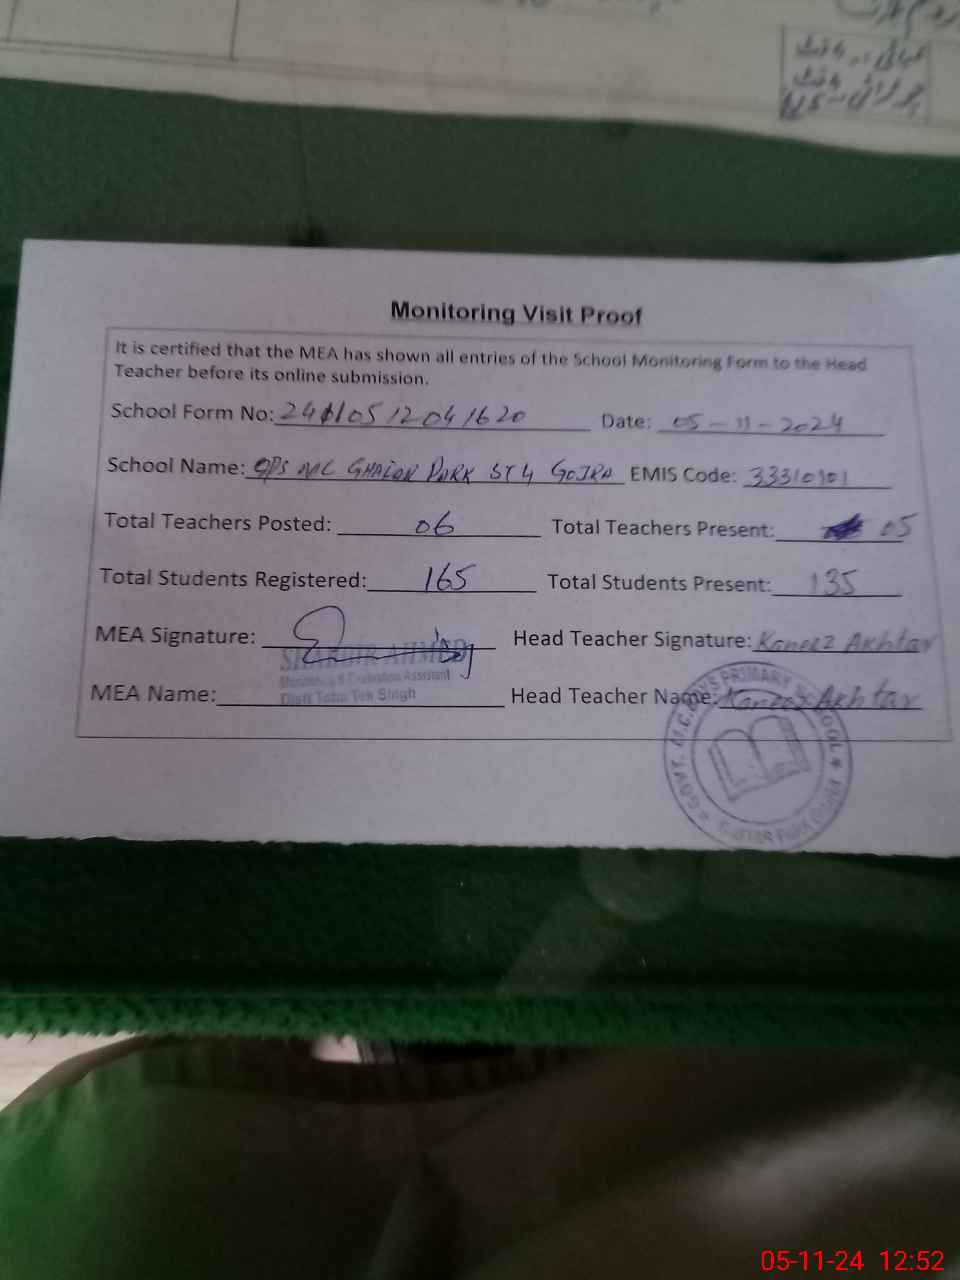 Monitoring Visit Proof
It is certified that the MEA has shown all entries of the School Monitoring Form to the Head
Teacher before its online submission.
School Form No: 24110512041620 Date: 05-11-2024
School Name: GPS MC Park ST 4 GOJRA EMIS Code: 33310101
Total Teachers Posted: 06 Total Teachers Present: 05
Total Students Registered: 165 Total Students Present: 135
MEA Signature: Head Teacher Signature: Kaneez Akhtar
SHABBIR AHMED
Monitoring & Evaluation Assistant
Distt Toba Tek Singh
MEA Name: Head Teacher Name: Kaneez Akhtar
GOVT. M.C. BOYS PRIMARY SCHOOL
05-11-24 12:52